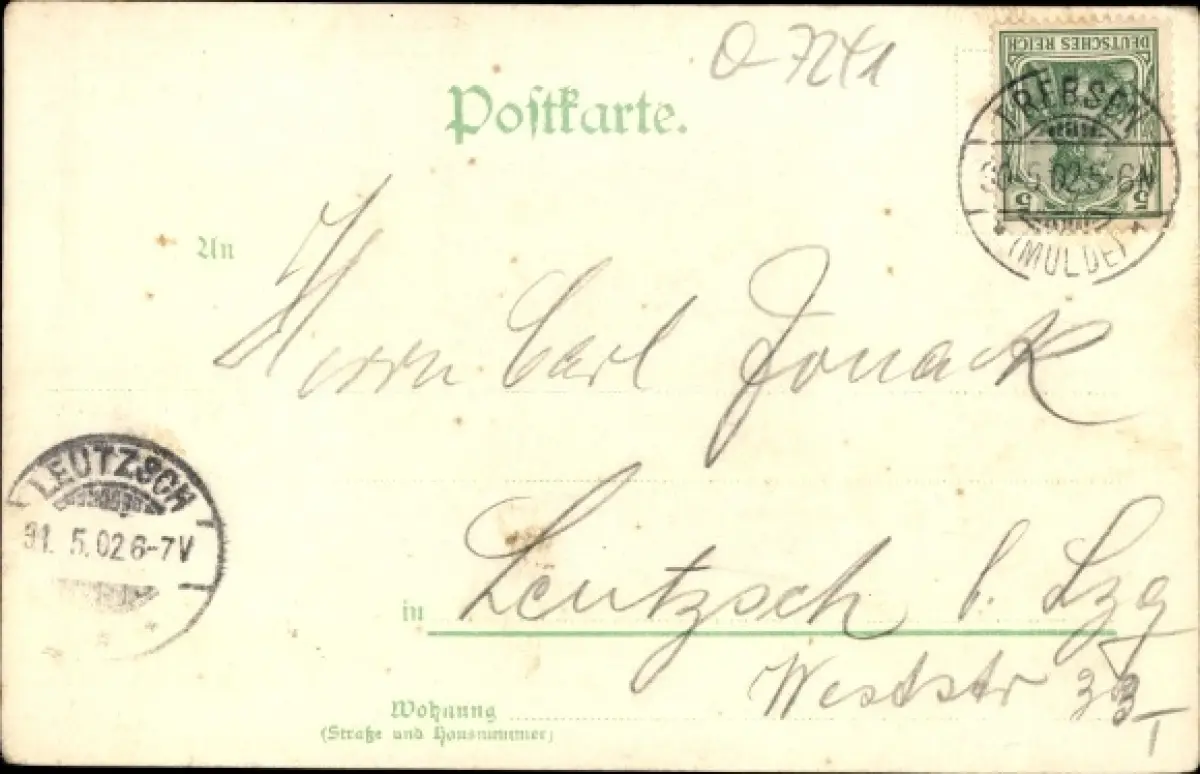 O 7241
Postkarte.
DEUTSCHES REICH
5 5
TREBSEN
30.5.02.5-6N
(MULDE)
An
Herrn Carl Jonack
LEUTZSCH
31.5.02 6-7V
in Leutzsch b. Lzg
Weststr 33 I
Wohnung
(Straße und Hausnummer)